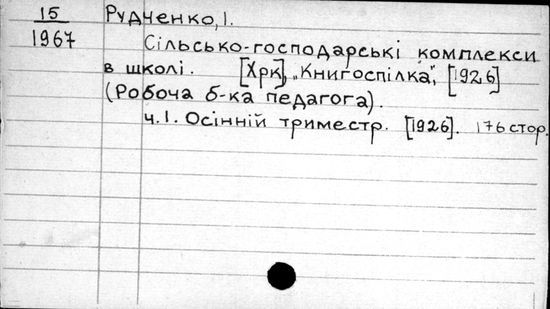 15 Рудченко, І.
1967 Сільсько-господарські комплекси
в школі. [Хрк], "Книгоспілка", [1926]
(Робоча б-ка педагога).
ч.І. Осінній триместр. [1926]. 176 стор.